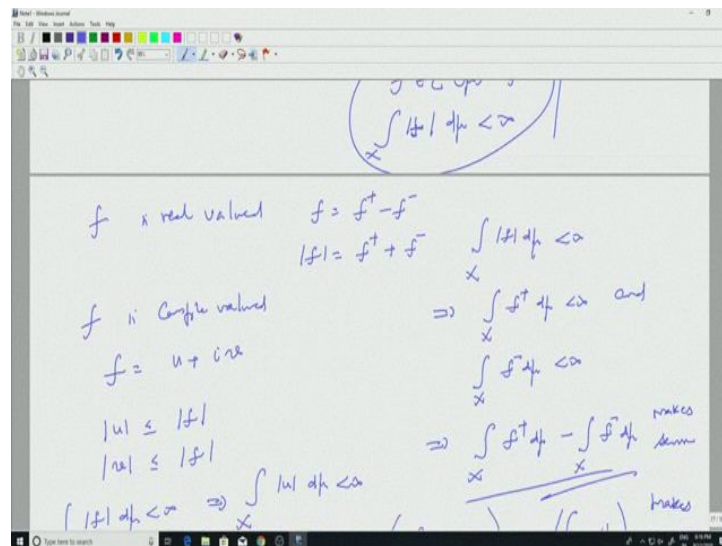 Note1 - Windows Journal
File Edit View Insert Actions Tools Help
∫_X |f| dμ < ∞
f is real valued f = f⁺ - f⁻
|f| = f⁺ + f⁻
∫_X |f| dμ < ∞
⇒ ∫_X f⁺ dμ < ∞ and
∫_X f⁻ dμ < ∞
⇒ ∫_X f⁺ dμ - ∫_X f⁻ dμ makes sense
f is Complex valued
f = u + iv
|u| ≤ |f|
|v| ≤ |f|
∫ |f| dμ < ∞ ⇒ ∫_X |u| dμ < ∞
makes
Type here to search
ENG